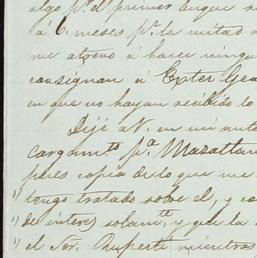 algo pr. el primer buque
á 6. meses pr. la mitad
me atrevo á hacer ningu
consignan á Exter Gea
en que no hayan recibido lo
Dijé a V. en mi ant
cargamto. pa. Mazatlan
pues copia de lo que me
tengo tratado sobre el, y
de interes solamte. y que la
el Sor. Ruperti mientras